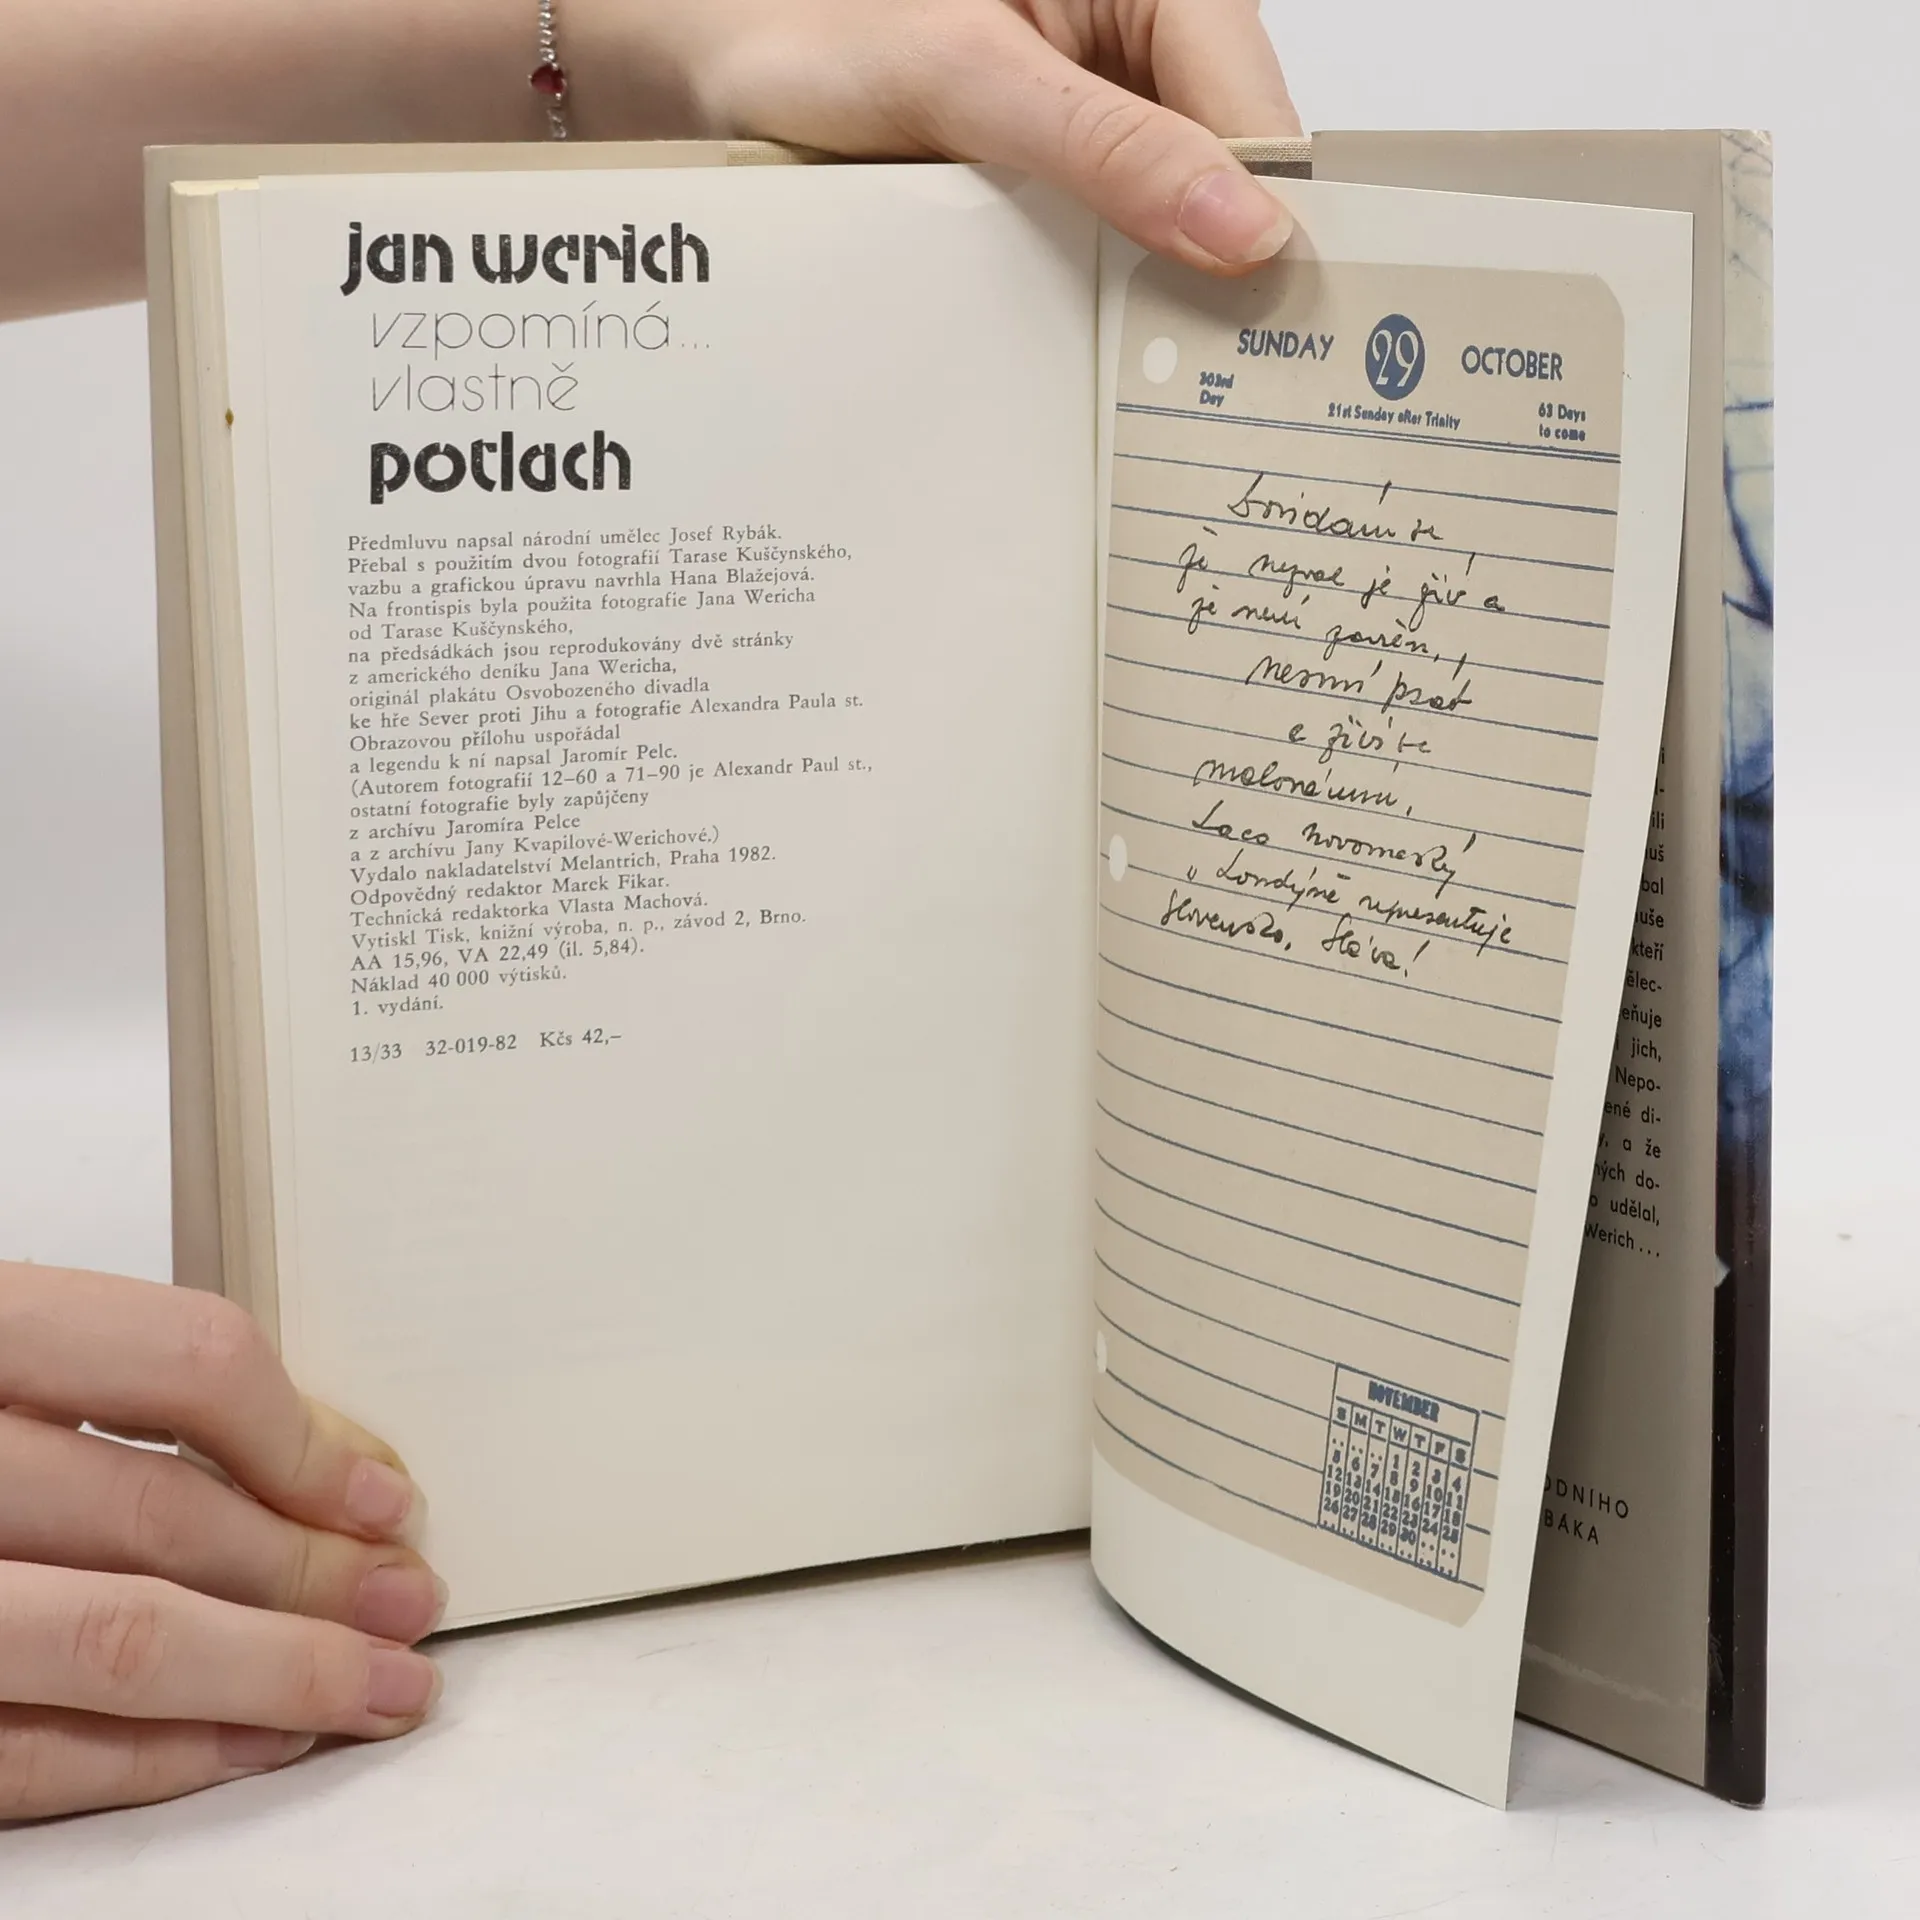 jan werich
vzpomíná...
vlastně
potlach
Předmluvu napsal národní umělec Josef Rybák.
Přebal s použitím dvou fotografií Tarase Kuščynského,
vazbu a grafickou úpravu navrhla Hana Blažejová.
Na frontispis byla použita fotografie Jana Wericha
od Tarase Kuščynského,
na předsádkách jsou reprodukovány dvě stránky
z amerického deníku Jana Wericha,
originál plakátu Osvobozeného divadla
ke hře Sever proti Jihu a fotografie Alexandra Paula st.
Obrazovou přílohu uspořádal
a legendu k ní napsal Jaromír Pelc.
(Autorem fotografií 12–60 a 71–90 je Alexandr Paul st.,
ostatní fotografie byly zapůjčeny
z archívu Jaromíra Pelce
a z archívu Jany Kvapilové-Werichové.)
Vydalo nakladatelství Melantrich, Praha 1982.
Odpovědný redaktor Marek Fikar.
Technická redaktorka Vlasta Machová.
Vytiskl Tisk, knižní výroba, n. p., závod 2, Brno.
AA 15,96, VA 22,49 (il. 5,84).
Náklad 40 000 výtisků.
1. vydání.
13/33 32-019-82 Kčs 42,–
SUNDAY 29 OCTOBER
303rd
Day
21st Sunday after Trinity
63 Days
to come
Dovídám se
že nezval je živ a
že není zavřen,
nesmí psát
a živí se
malováním.
Laco Novomeský
v Londýně representuje
Slovensko. Sláva!
NOVEMBER
S M T W T F S
.. .. .. 1 2 3 4
5 6 7 8 9 10 11
12 13 14 15 16 17 18
19 20 21 22 23 24 25
26 27 28 29 30 .. ..
kteří
ělec-
eňuje
jich,
Nepo-
ené di-
y, a že
ných do-
udělal,
Werich...
ODNÍHO
BÁKA